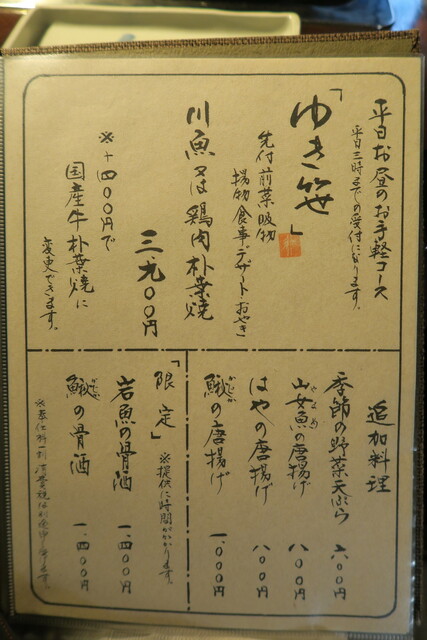 平日お昼のお手軽コース
平日三時までの受付になります。
「ゆき笹」
先付 前菜 吸物
揚物 食事 デザート・おやき
川魚又は鶏肉朴葉焼
三、九〇〇円
※+四〇〇円で
国産牛朴葉焼に
変更できます。
追加料理
季節の野菜天ぷら 六〇〇円
山女魚の唐揚げ 八〇〇円
はやの唐揚げ 八〇〇円
鰍の唐揚げ 一、〇〇〇円
かじか
「限定」
※提供に時間がかかります。
岩魚の骨酒 一、四〇〇円
鰍の骨酒 一、四〇〇円
かじか
※奉仕料一割 消費税は別途申し受けます。